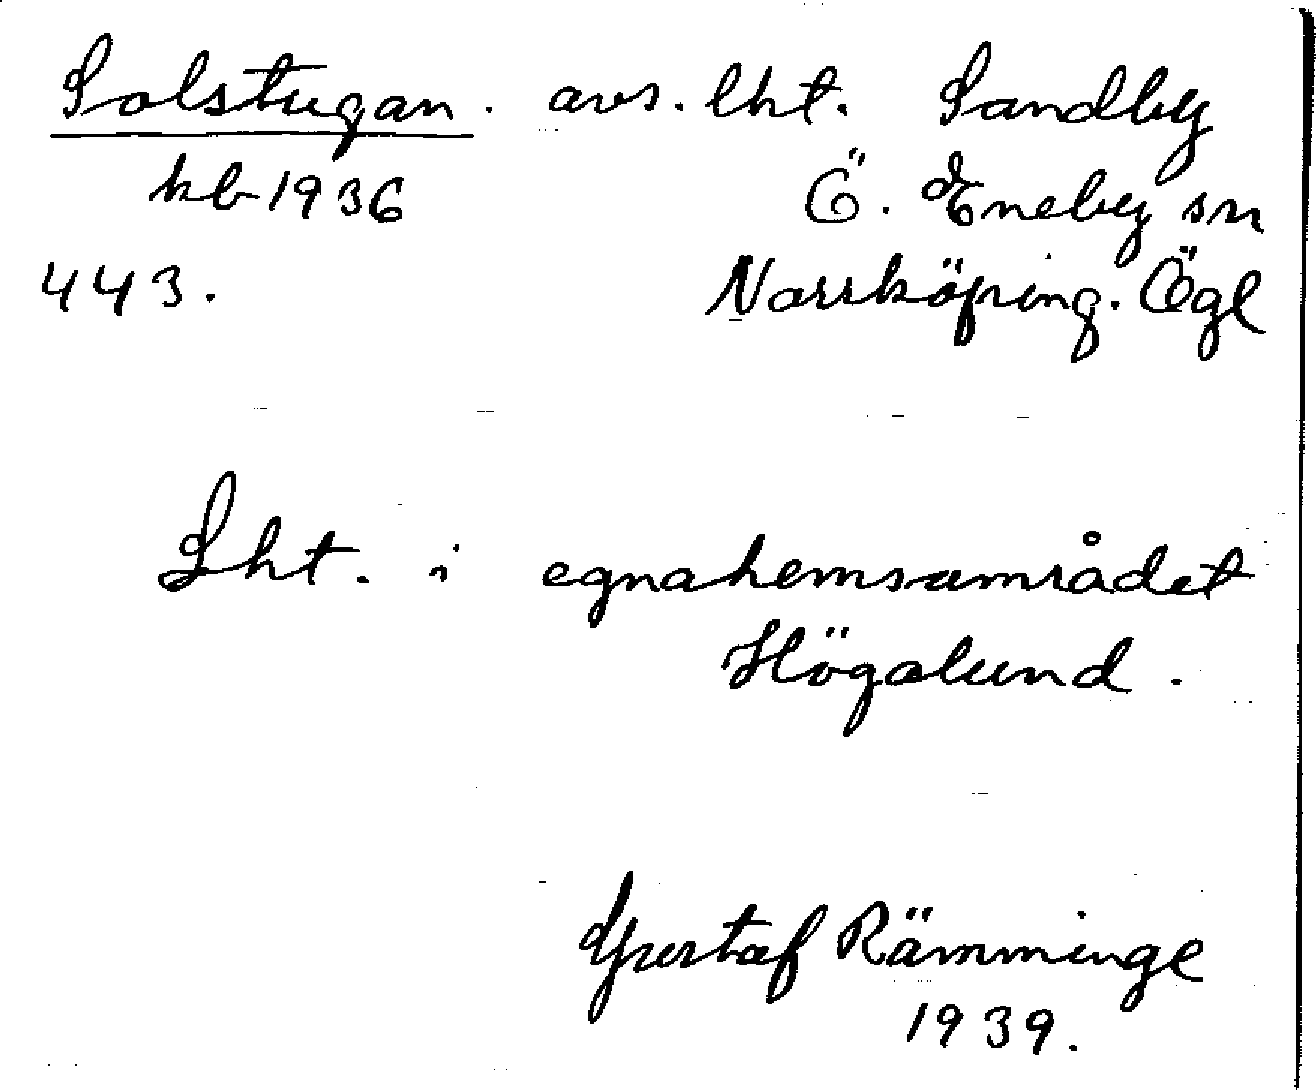 Solstugan. avs. lht. Sandby
kb 1936 Ö. Eneby sn
443. Norrköping. Ögl
Lht. i egnahemsområdet
Högalund.
Gustaf Rämminge
1939.